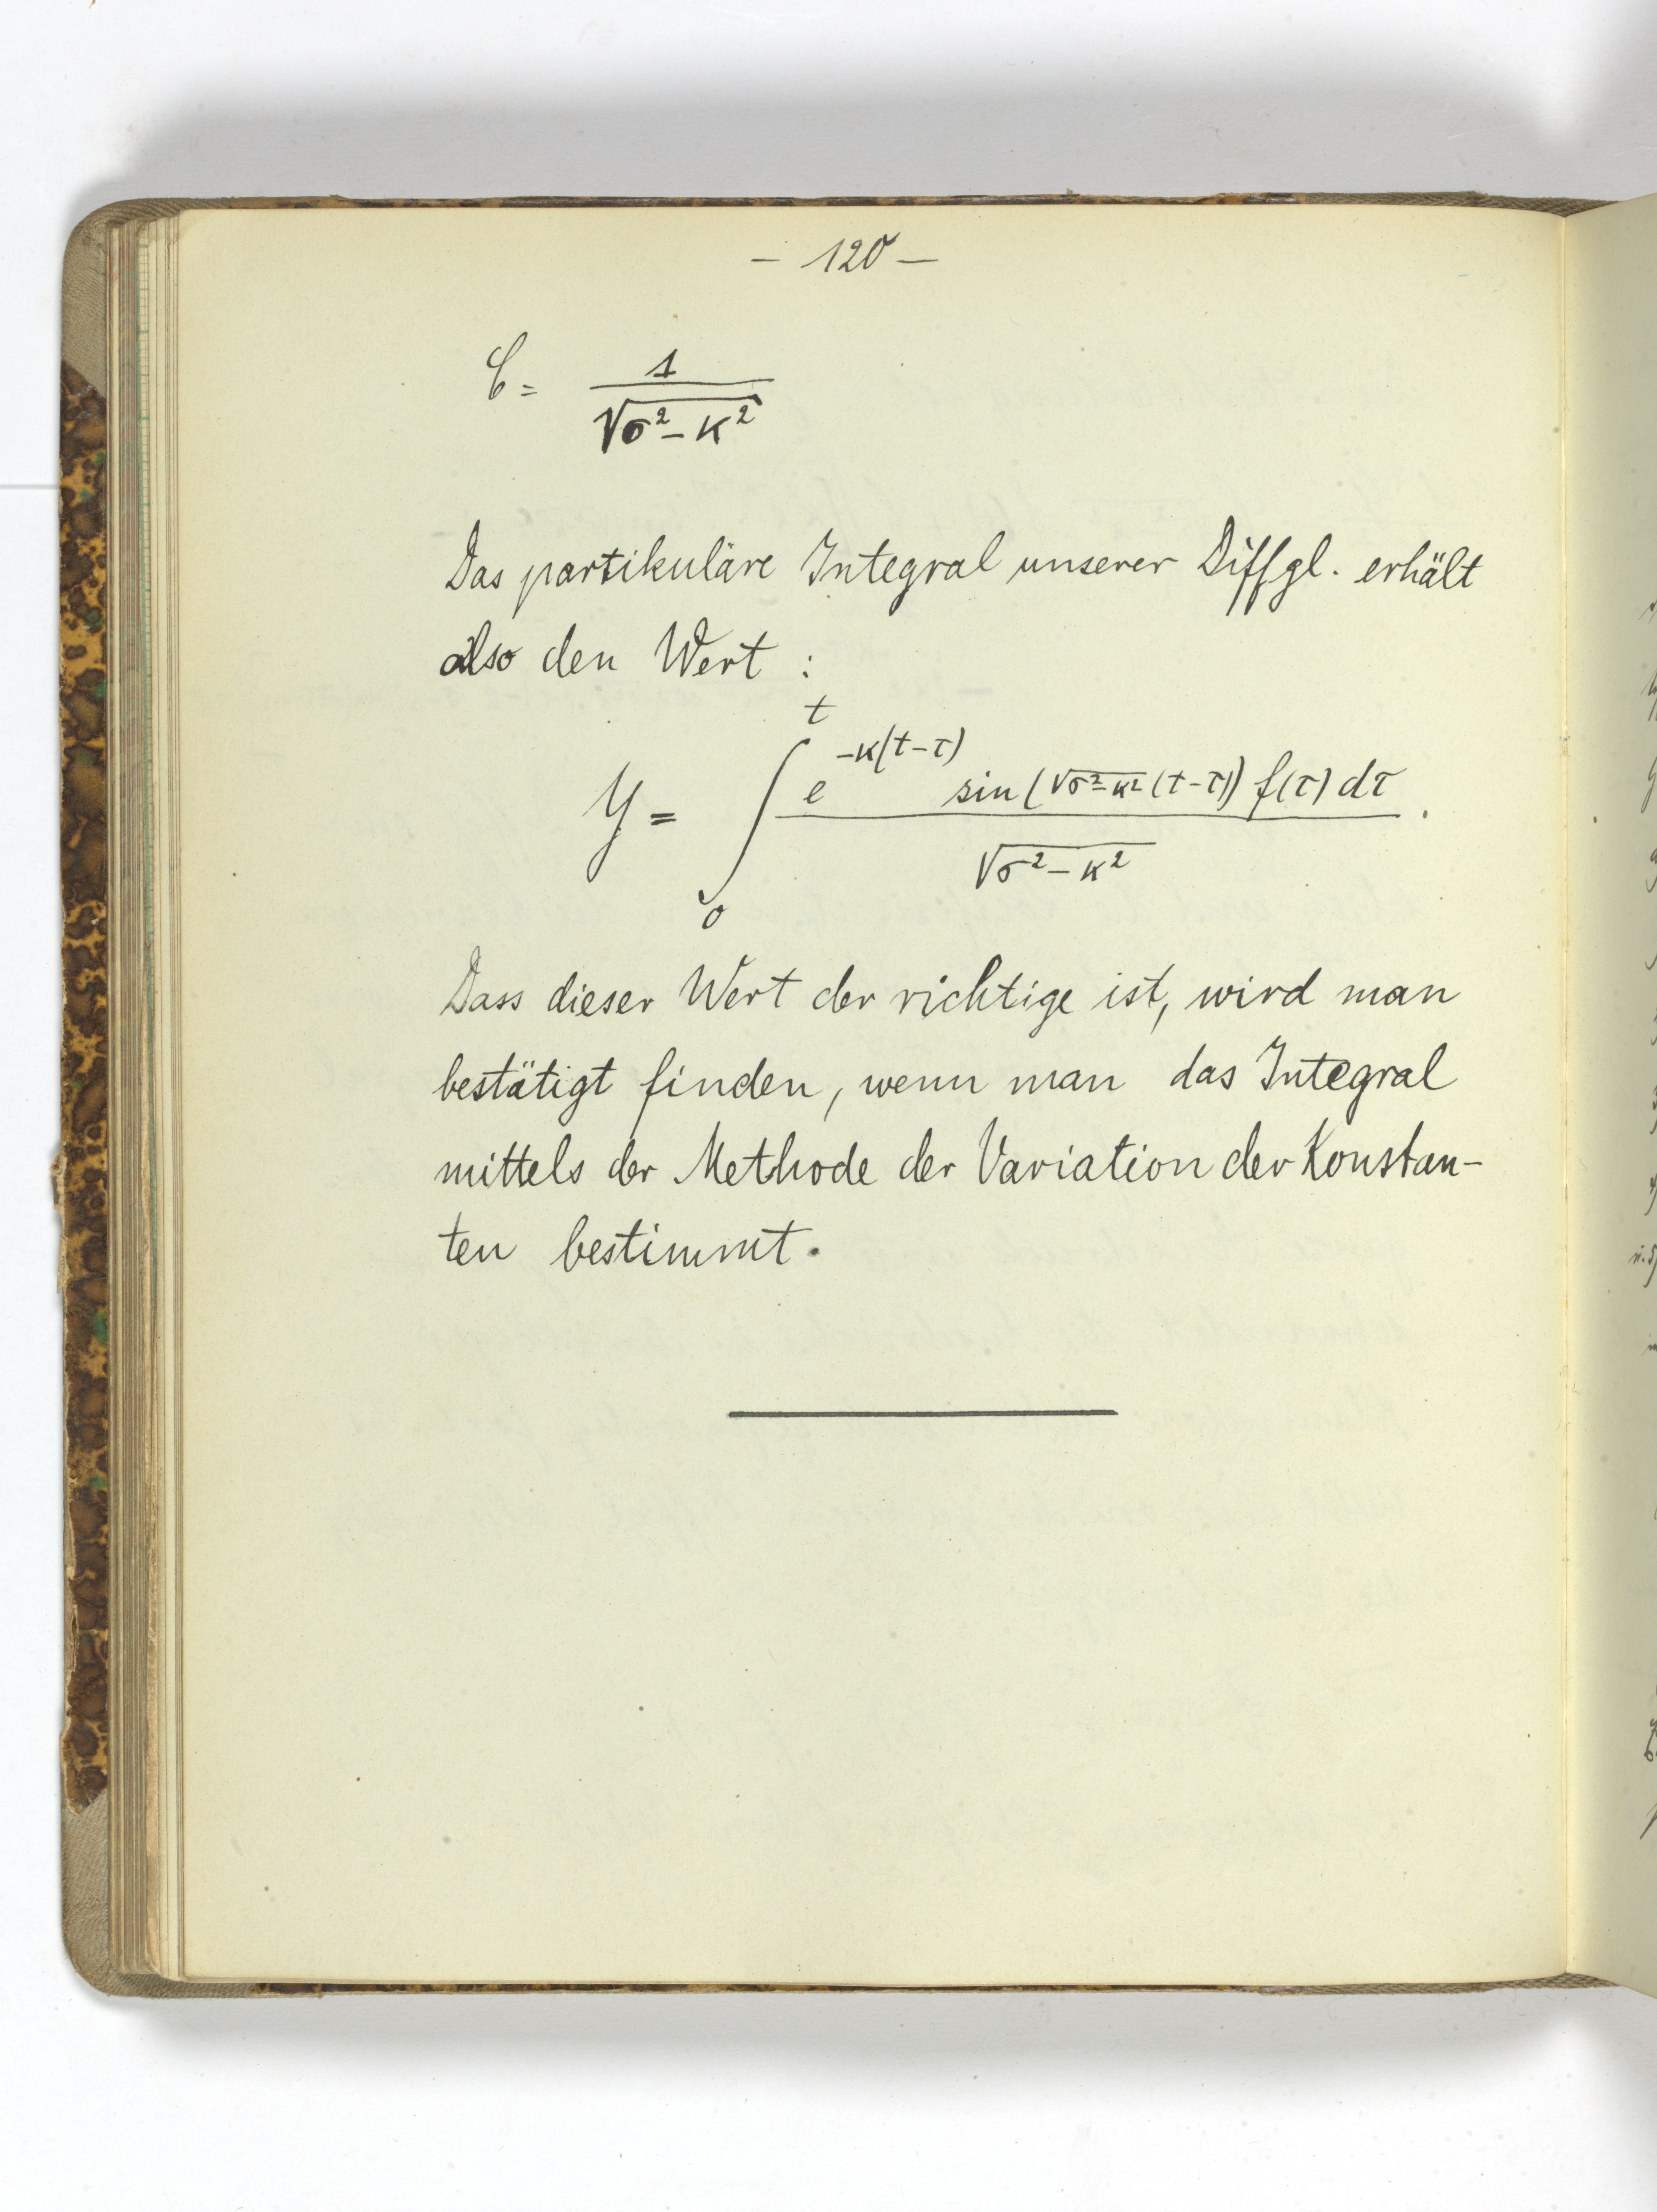 – 120 –
C = 1 / √σ² – κ²
Das partikuläre Integral unserer Diffgl. erhält
also den Wert :
y = ∫₀ᵗ e^{-κ(t-τ)} sin (√σ²-κ² (t-τ)) f(τ) dτ / √σ² – κ² .
Dass dieser Wert der richtige ist, wird man
bestätigt finden, wenn man das Integral
mittels der Methode der Variation der Konstan-
ten bestimmt.